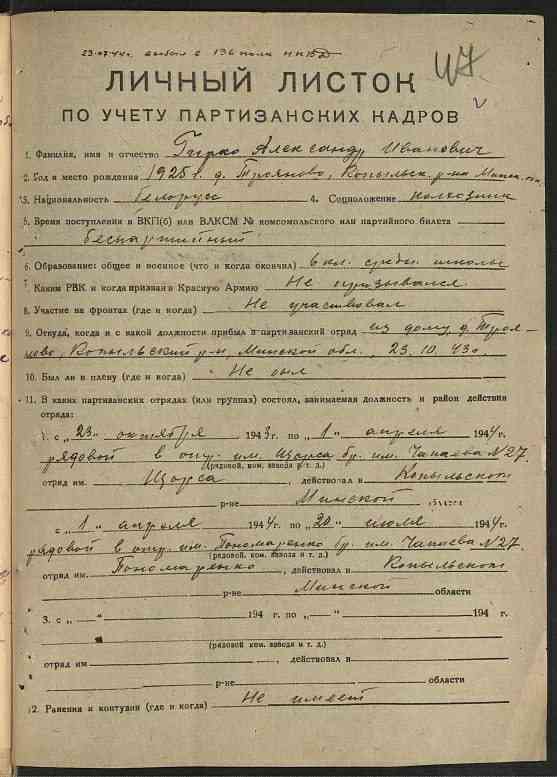 23.07.44г. выбыл в 136 полк НКВД
ЛИЧНЫЙ ЛИСТОК
ПО УЧЕТУ ПАРТИЗАНСКИХ КАДРОВ
1. Фамилия, имя и отчество Гирко Александр Иванович
2. Год и место рождения 1925 г. д. Трояново, Копыльск. р-на Минск. обл.
3. Национальность белорус 4. Соцположение колхозник
5. Время поступления в ВКП(б) или ВЛКСМ № комсомольского или партийного билета
беспартийный
6. Образование: общее и военное (что и когда окончил) 6 кл. средн. школы
7. Каким РВК и когда призван в Красную Армию Не призывался
8. Участие на фронтах (где и когда) Не участвовал
9. Откуда, когда и с какой должности прибыл в партизанский отряд из дому, д. Троя-
ново, Копыльский р-н, Минской обл., 23.10.43г.
10. Был ли в плену (где и когда) Не был
11. В каких партизанских отрядах (или группах) состоял, занимаемая должность и район действия
отряда:
1. с „23" октября 1943г. по „1" апреля 1944г.
рядовой в отр. им. Щорса бр. им. Чапаева N27.
(рядовой, ком. взвода и т. д.)
отряд им. Щорса, действовал в Копыльском
р-не Минской области
с „1" апреля 1944г. по „20" июля 1944г.
рядовой в отр. им. Пономаренко бр. им. Чапаева N27.
(рядовой, ком. взвода и т. д.)
отряд им. Пономаренко, действовал в Копыльском
р-не Минской области
3. с „ " 194 г. по „ " 194 г.
(рядовой, ком. взвода и т. д.)
отряд им , действовал в
р-не области
12. Ранения и контузии (где и когда) Не имеет